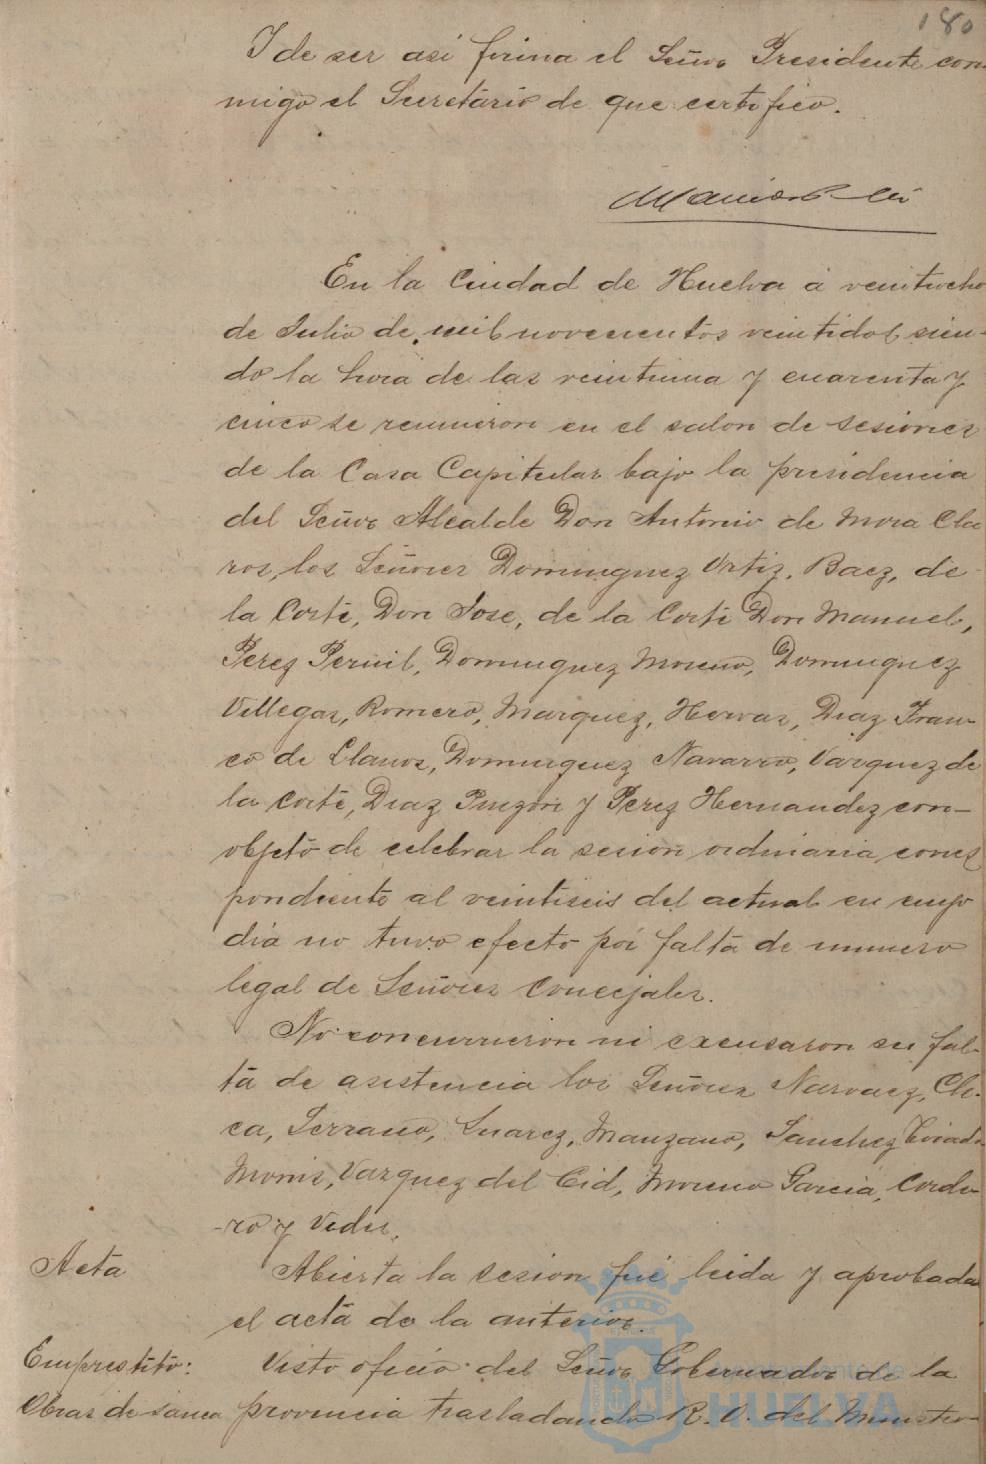 180
I de ser asi firma el Señor Presidente con
migo el Secretario de que certifico.
En la Ciudad de Huelva á veintiocho
de Julio de mil novecientos veintidos sien-
do la hora de las veintiuna y cuarenta y
cinco se reunieron en el salon de sesiones
de la Casa Capitular bajo la presidencia
del Señor Alcalde Don Antonio de Mora Cla
ros, los Señores Dominguez Ortiz, Baez, de
la Corte, Don Jose, de la Corte Don Manuel,
Perez Pernil, Dominguez Moreno, Dominguez
Villegas, Romero, Marquez, Hervas, Diaz Fran-
co de Llanos, Dominguez Navarro, Vazquez de
la Corte, Diaz Pinzon y Perez Hernandez con-
objeto de celebrar la sesion ordinaria corres
pondiente al veintiseis del actual en cuyo
dia no tuvo efecto por falta de numero
legal de Señores Concejales.
No concurrieron ni excusaron su fal-
ta de asistencia los Señores Narvaez, Che-
ca, Serrano, Suarez, Manzano, Sanchez
Monis, Vazquez del Cid, Moreno Garcia, Corde-
-ro y Vides.
Acta
Abierta la sesion fué leida y aprobada
el acta de la anterior.
Emprestito:
Visto oficio del Señor Gobernador de la
Obras de sanea
provincia trasladando R. O. del Ministe-
Ayuntamiento de
HUELVA